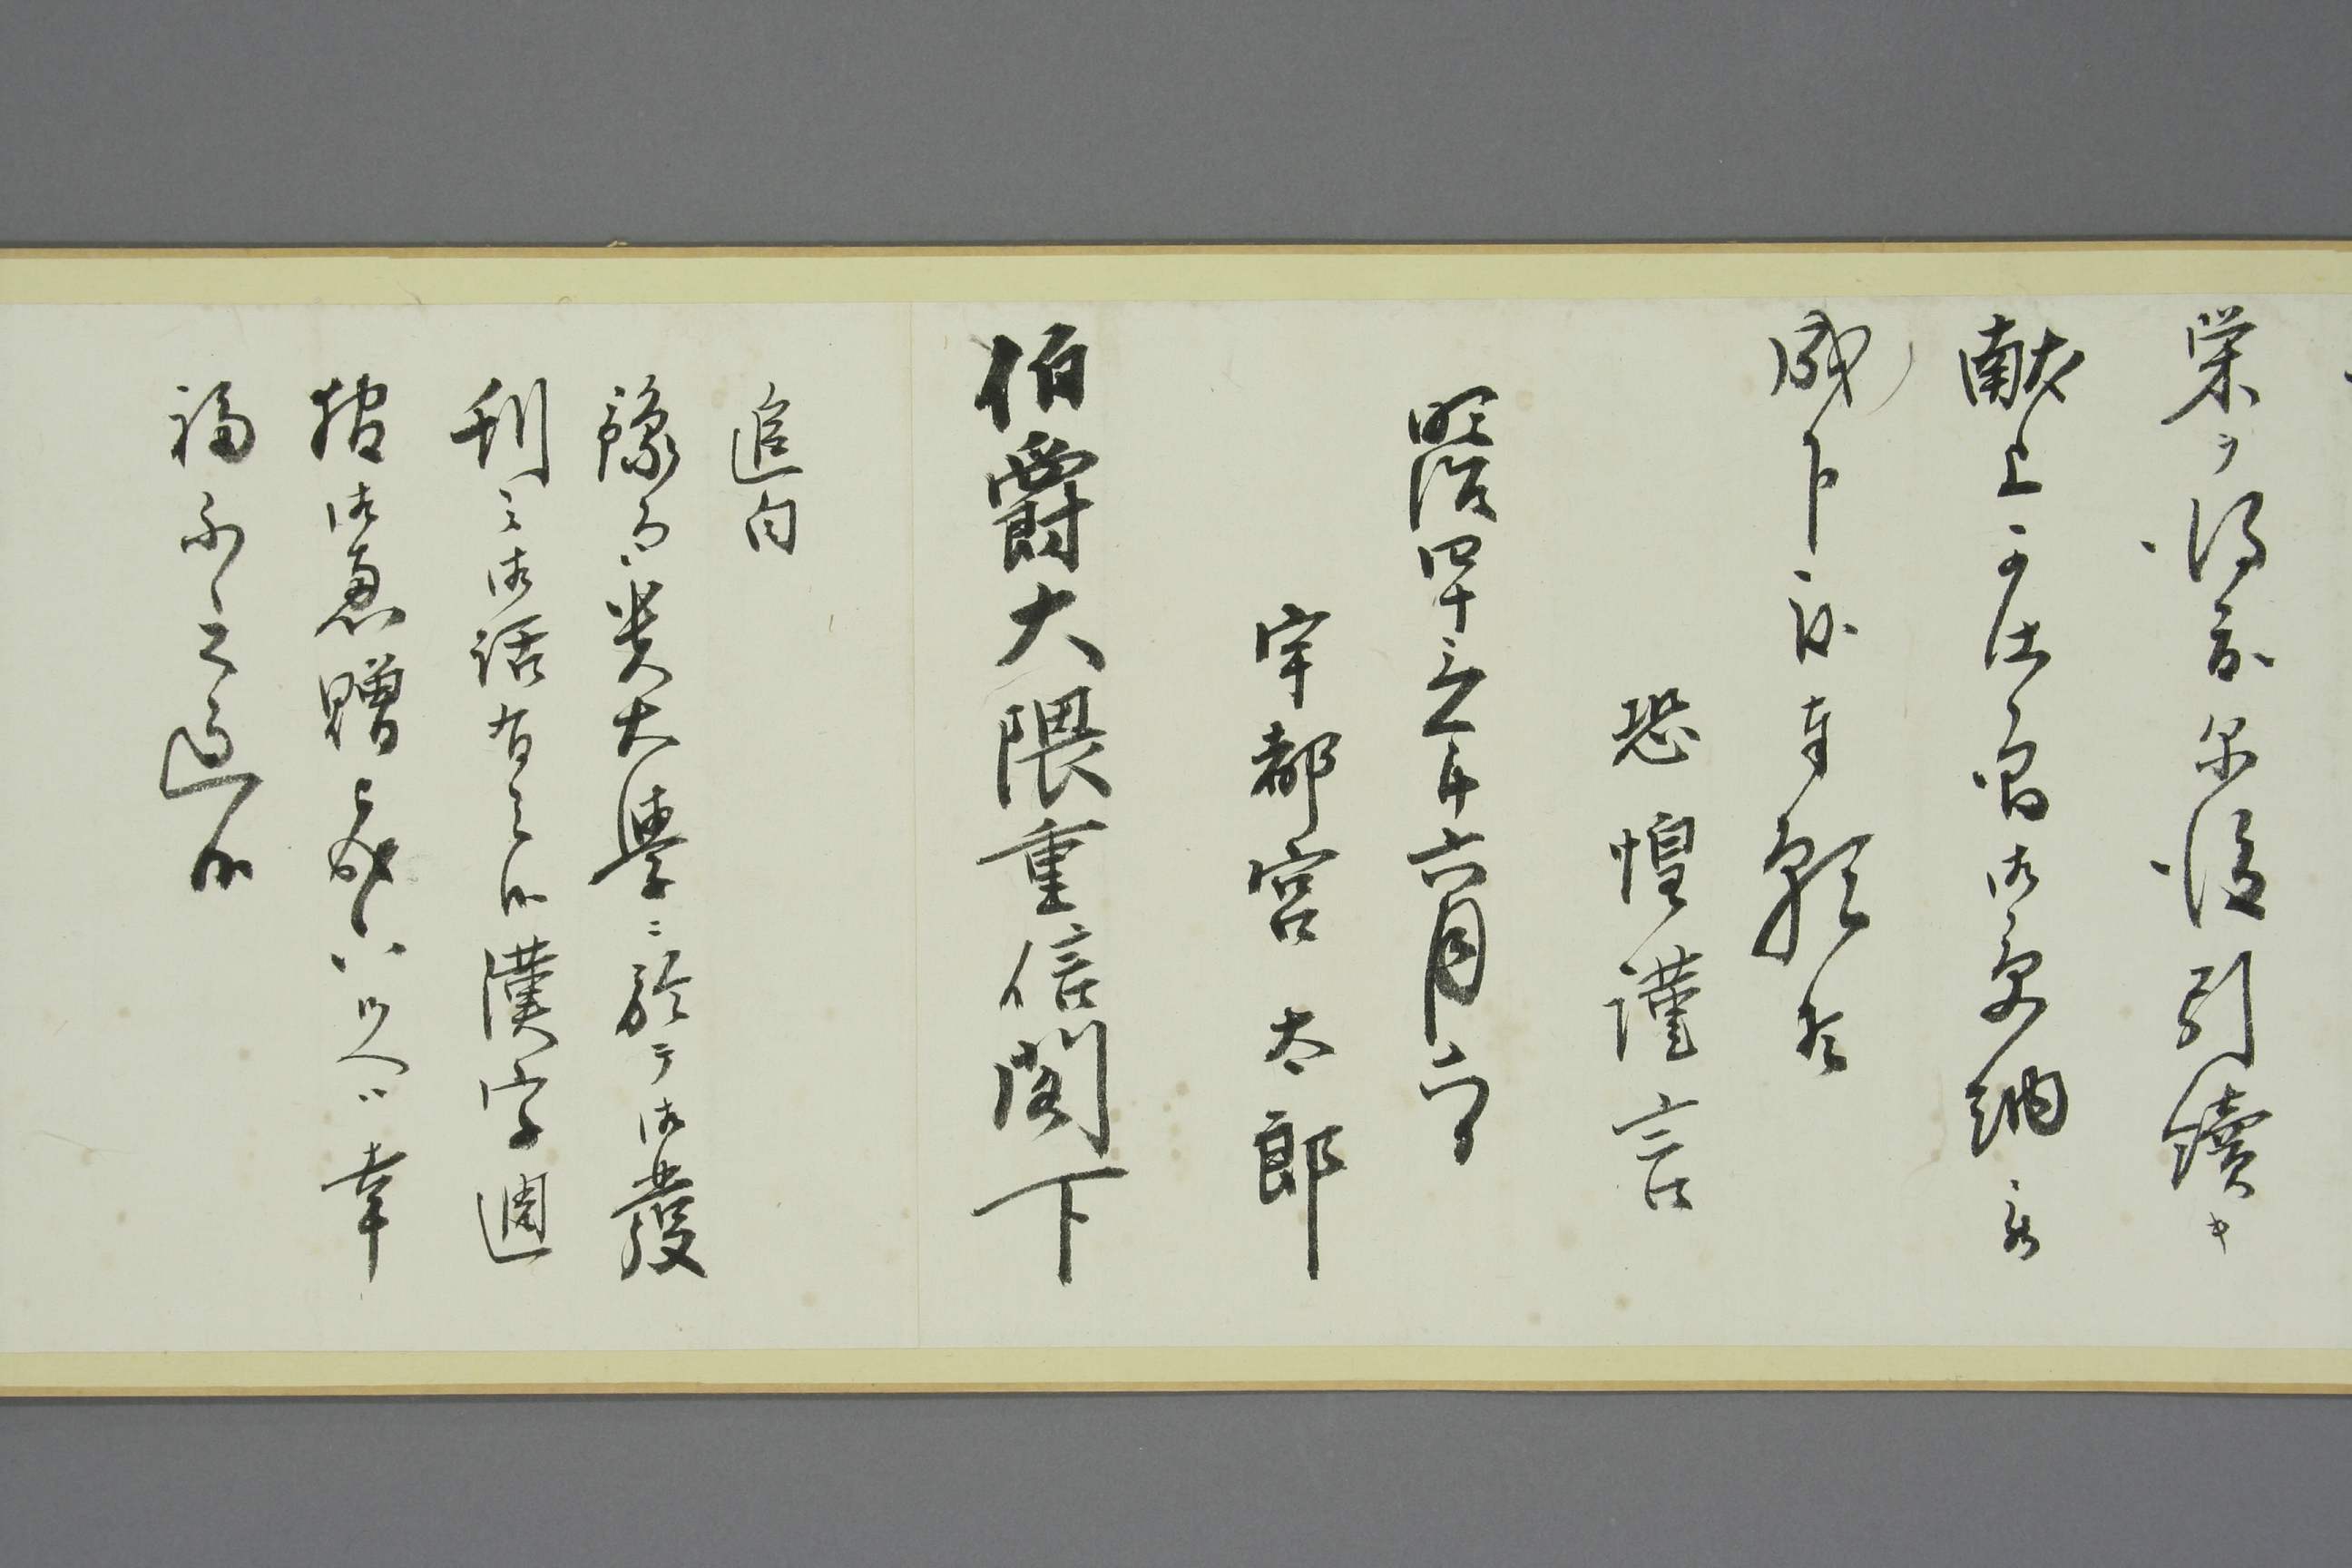 栄ヲ得度尚後引續キ
献上可仕候間御受納被
成下度奉願候
恐惶謹言
明治四十三年六月六日
宇都宮太郎
伯爵大隈重信閣下
追白
豫而貴大學ニ於テ御發
刊之御話有之候漢字週
報御恵贈被成下候ハヾ幸
福不過之候